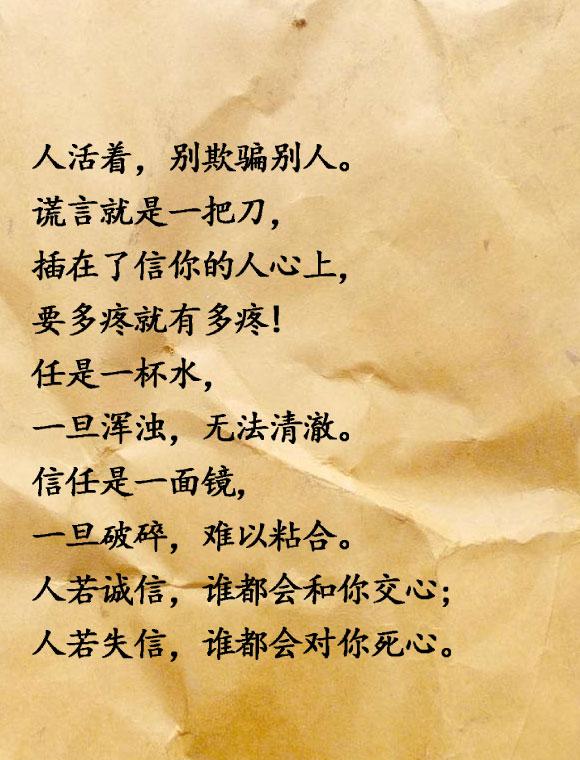 人活着，别欺骗别人。
谎言就是一把刀，
插在了信你的人心上，
要多疼就有多疼！
任是一杯水，
一旦浑浊，无法清澈。
信任是一面镜，
一旦破碎，难以粘合。
人若诚信，谁都会和你交心；
人若失信，谁都会对你死心。